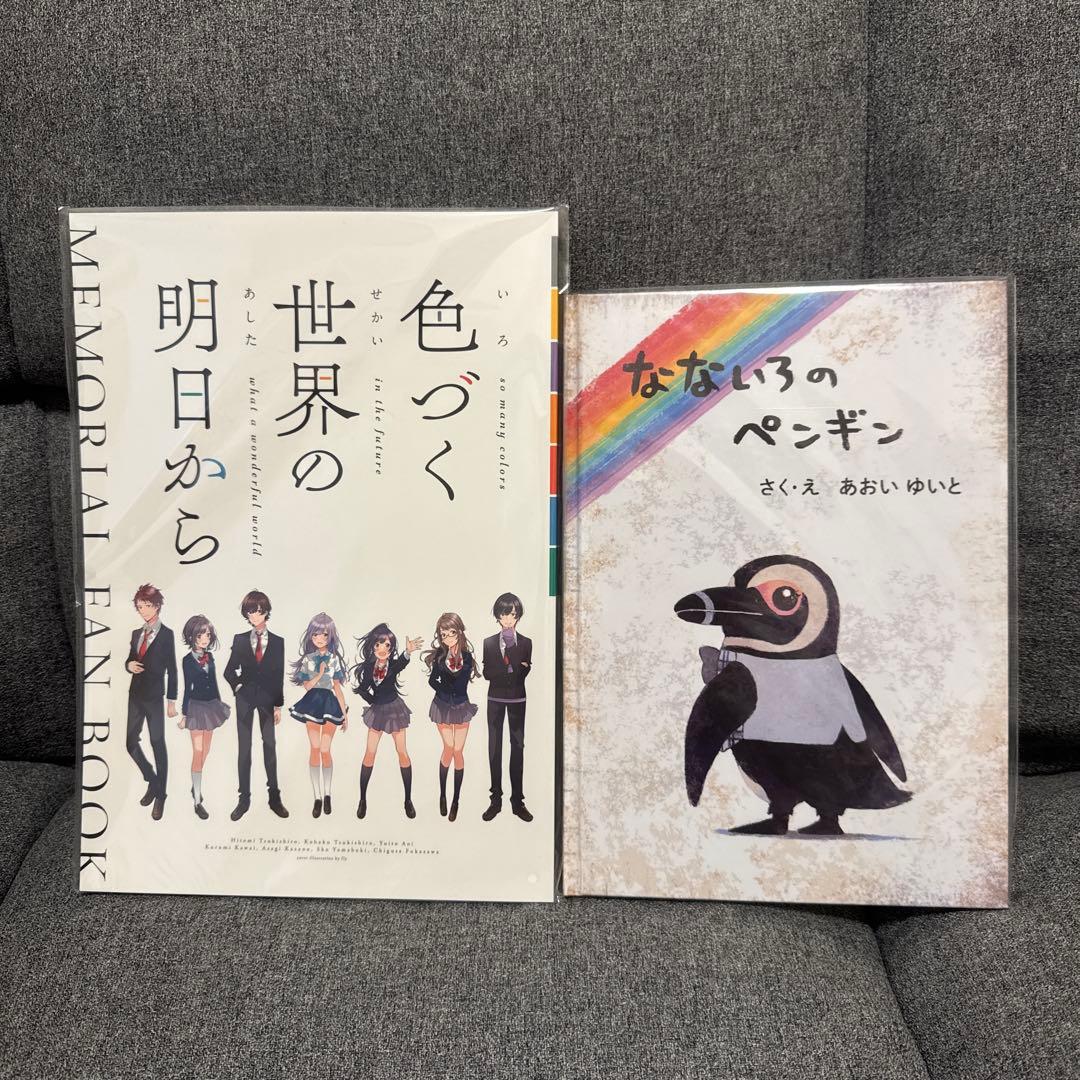 MEMORIAL FAN BOOK
色づく
いろ
so many colors
世界の
せかい
in the future
明日から
あした
what a wonderful world
Hitomi Tsukishiro, Kohaku Tsukishiro, Yuito Aoi
Kurumi Kawai, Asagi Kazano, Sho Yamabuki, Chigusa Fukasawa
cover illustration by fly
なないろの
ペンギン
さく・え あおい ゆいと